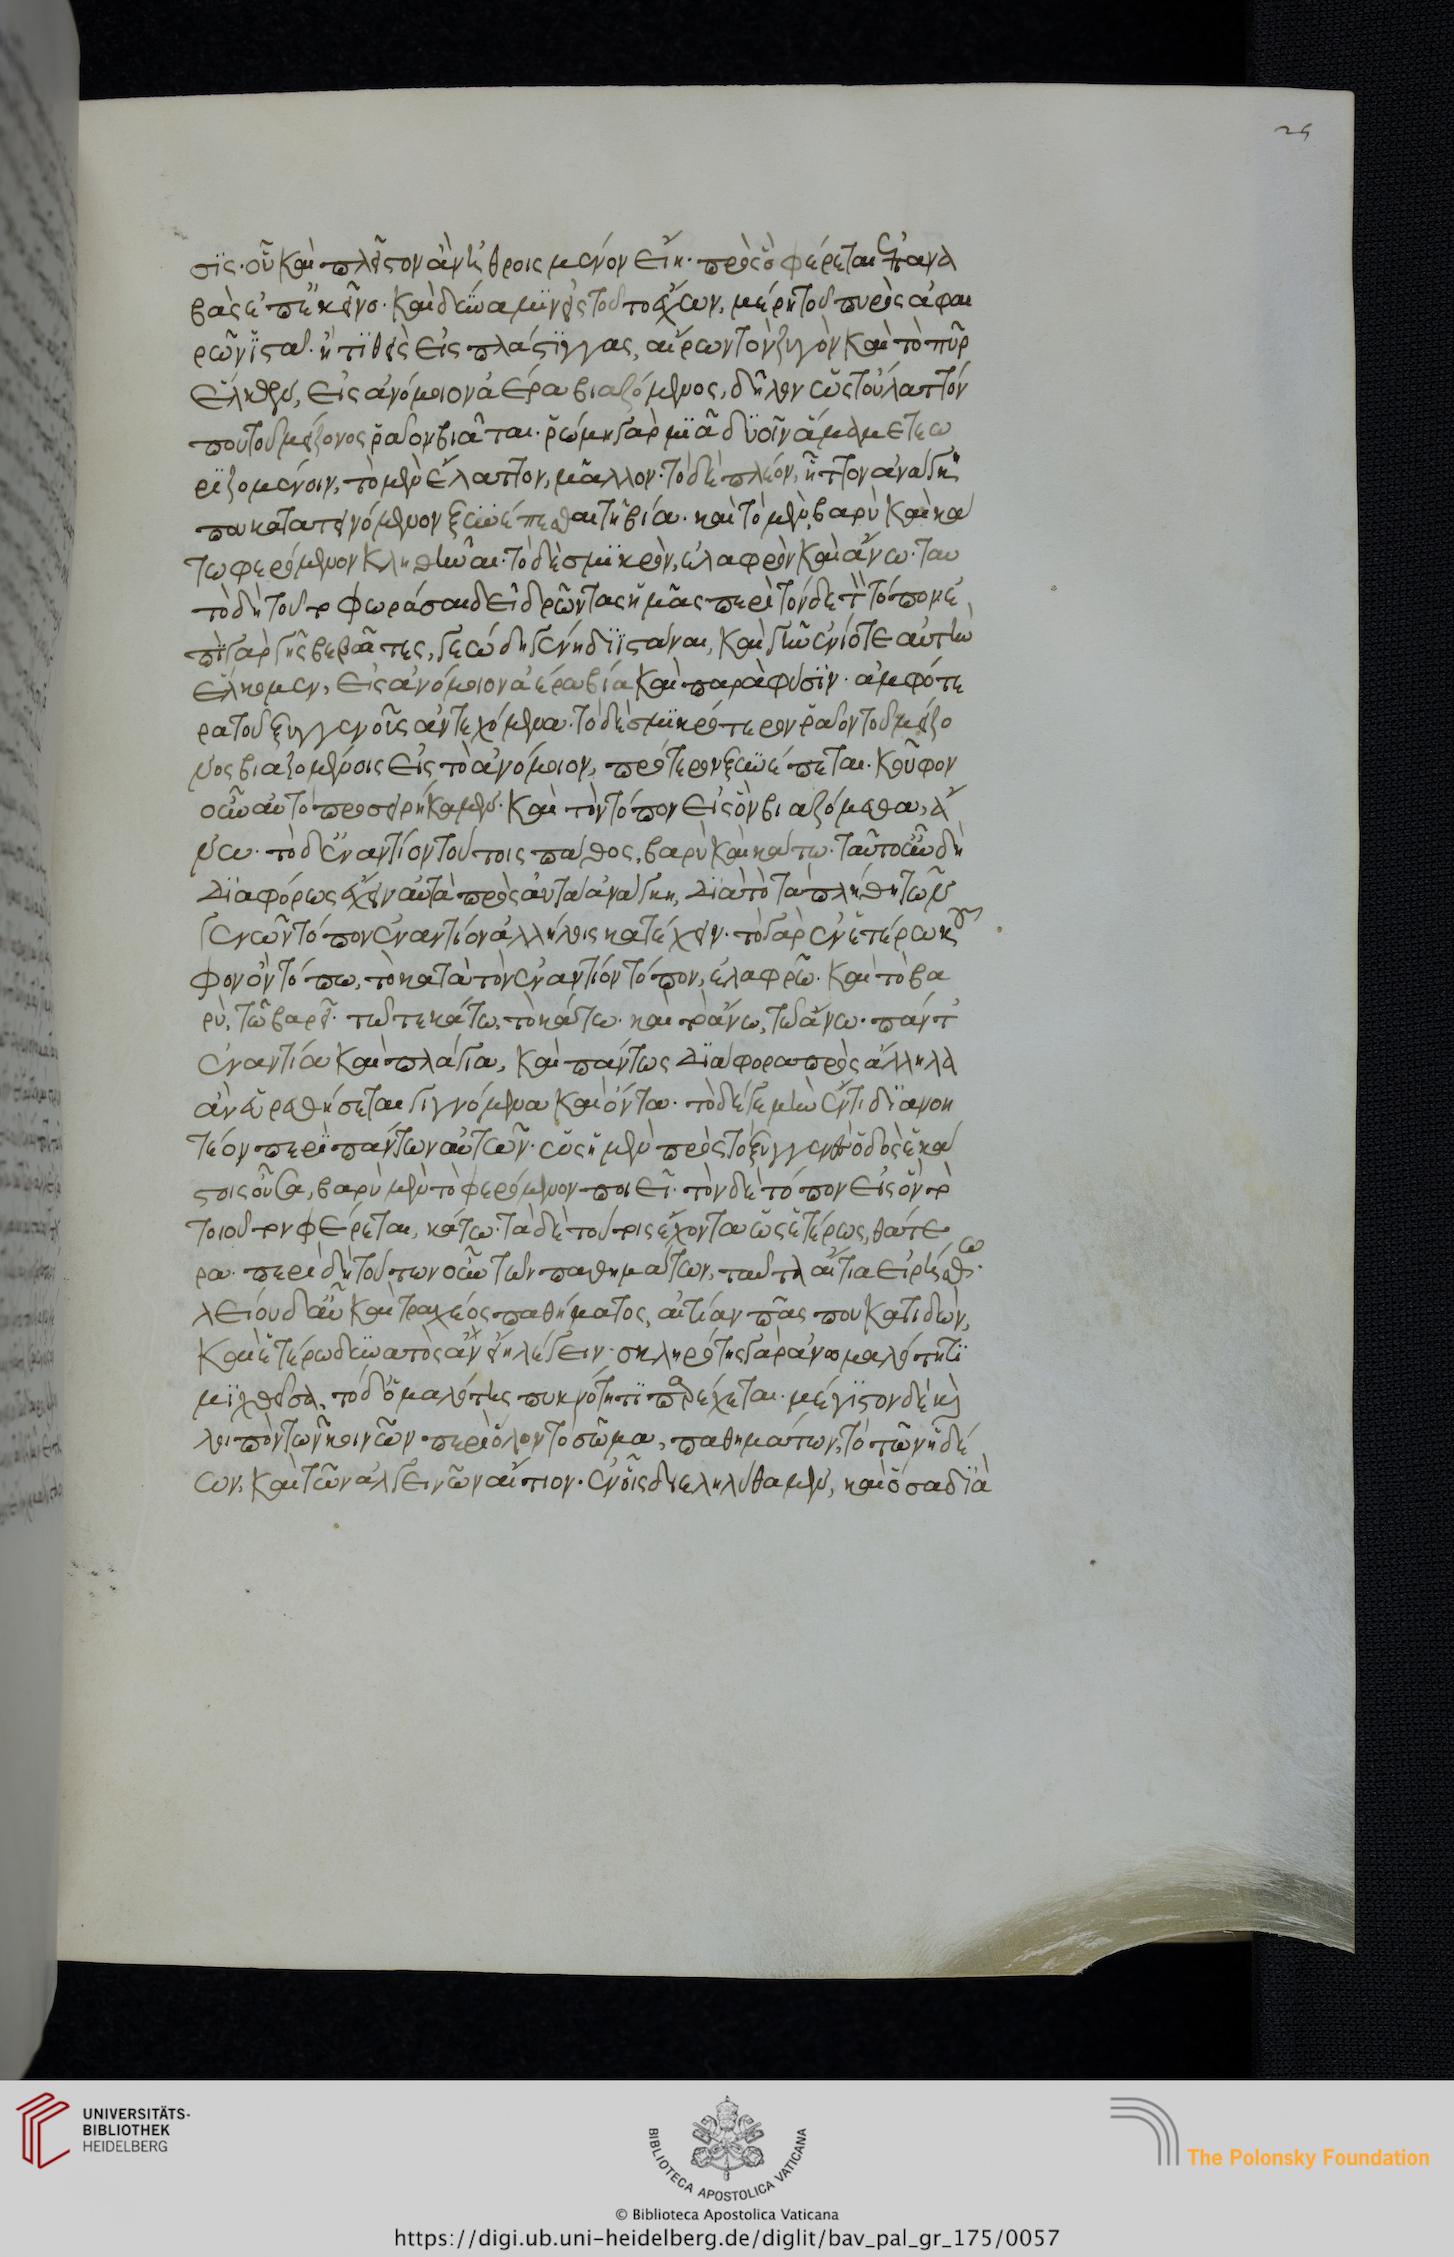 σϊς· οὗ καὶ πλεῖστον ἂν ἠθροισμένον εἴη· πρὸς ὃ φέρεται ἐπανα
βὰς ἐπ' ἐκεῖνο· καὶ δύναμϊν εἰς τοῦτο ἔχων, μέρη τοῦ πυρὸς ἀφαι
ρῶν ἵσταί· ἢ τϊθεὶς εἰς πλάστϊγγας, αἴρων τὸν ζυγὸν καὶ τὸ πῦρ
ἕληθεν, εἰς ἀνόμοιον ἀέρα βιαζόμενος, δῆλον ὡς τοὔλαττόν
που τοῦ μείζονος ῥᾶον βιᾶται· ῥώμη γὰρ μϊᾶ δυοῖν ἅμα μετεω
ρϊζομένοιν, τὸ μὲν ἔλαττον, μᾶλλον· τὸ δὲ πλέον, ἧττον ἀνάγκη
που κατατεινόμενον ξυνέπεσθαι τῆ βία· καὶ τὸ μὲν βαρὺ καὶ κά
τω φερόμενον κληθῆναι· τὸ δὲ σμϊκρὸν, ἐλαφρὸν καὶ ἄνω· ταυ
τὸ δὴ τοῦτο φωράσαι δεῖ δρῶντας ἡμᾶς περὶ τόνδε τὸν τόπον· ἐ
πὶ γὰρ γῆς βεβῶτες, γεώδη γένη διϊστάναι, καὶ γῆν ἐνίοτε αὐτὴν
εἵλκομεν, εἰς ἀνόμοιον ἀέρα βία καὶ παρὰ φύσϊν· ἀμφότε
ρα τοῦ ξυγγενοῦς ἀντεχόμενα· τὸ δὲ σμϊκρότερον ῥᾶον τοῦ μείζο
νος βιαζομένοις εἰς τὸ ἀνόμοιον, πρότερον ξυνέπεται· κοῦφον
οὖν αὐτὸ προσειρήκαμεν· καὶ τὸν τόπον εἰς ὃν βιαζόμεθα, ἄ
νω· τὸ δ' ἐναντίον τούτοις πάθος, βαρὺ καὶ κάτω· ταῦτ' οὖν δὴ
διαφόρως ἔχειν αὐτὰ πρὸς αὑτὰ ἀνάγκη, διὰ τὸ τὰ πλήθη τῶν
γενῶν τόπον ἐναντίον ἀλλήλοις κατέχειν· τὸ γὰρ ἐν ἑτέρω κοῦ
φον ὂν τόπω, τὸ κατὰ τὸν ἐναντίον τόπον, ἐλαφρῶ· καὶ τὸ βα
ρὺ, τῶ βαρεῖ· τῶ τε κάτω, τὸ κάτω· καὶ τὸ ἄνω, τῶ ἄνω· πάντ'
ἐναντία καὶ πλάγια, καὶ πάντως διάφορα πρὸς ἄλληλα
ἀνευρεθήσεται γιγνόμενα καὶ ὄντα· τὸ δέ γε μὴν ἕν τι διανοη
τέον περὶ πάντων αὐτῶν· ὡς ἡ μὲν πρὸς τὸ ξυγγενὲς ὁδὸς ἑκά
στοις οὖσα, βαρὺ μὲν τὸ φερόμενον ποιεῖ· τὸν δὲ τόπον εἰς ὃν τὸ
τοιοῦτον φέρεται, κάτω· τὰ δὲ τούτοις ἔχοντα ὡς ἑτέρως, θάτε
ρα· περὶ δὴ τούτων οὖν τῶν παθημάτων, ταῦτα αἴτια εἰρήσθω·
λείου δ' αὖ καὶ τραχέος παθήματος, αἰτίαν πᾶς που κατιδὼν,
καὶ ἑτέρω δυνατὸς ἂν εἴη λέγειν· σκληρότης γὰρ ἀνωμαλότητϊ
μϊχθεῖσα, τὸ δ' ὁμαλότης πυκνότητϊ παρέχεται· μέγϊστον δὲ καὶ
λοιπὸν τῶν κοινῶν περὶ ὅλον τὸ σῶμα, παθημάτων, τὸ τῶν ἡδέ
ων, καὶ τῶν ἀλγεινῶν αἴτιον· ἐν οἷς διεληλύθαμεν, καὶ ὅσα διὰ
UNIVERSITÄTS-
BIBLIOTHEK
HEIDELBERG
BIBLIOTECA APOSTOLICA VATICANA
© Biblioteca Apostolica Vaticana
The Polonsky Foundation
https://digi.ub.uni-heidelberg.de/diglit/bav_pal_gr_175/0057